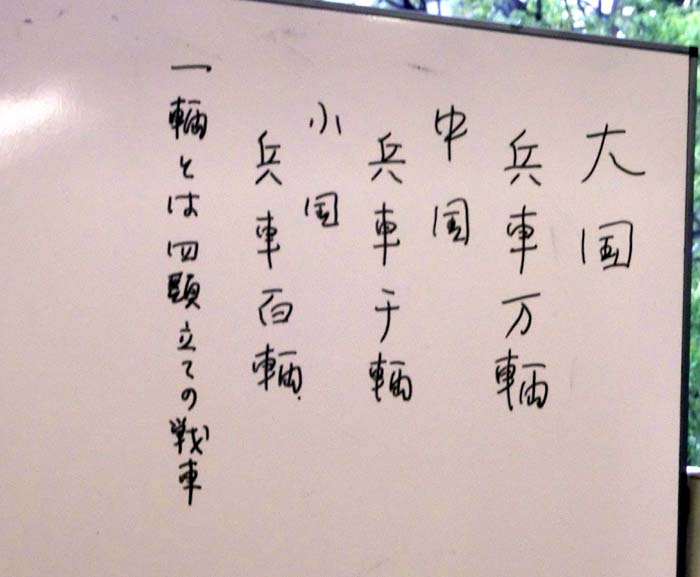 大国
兵車万輛
中国
兵車千輛
小国
兵車百輛
一輛とは四頭立ての戦車